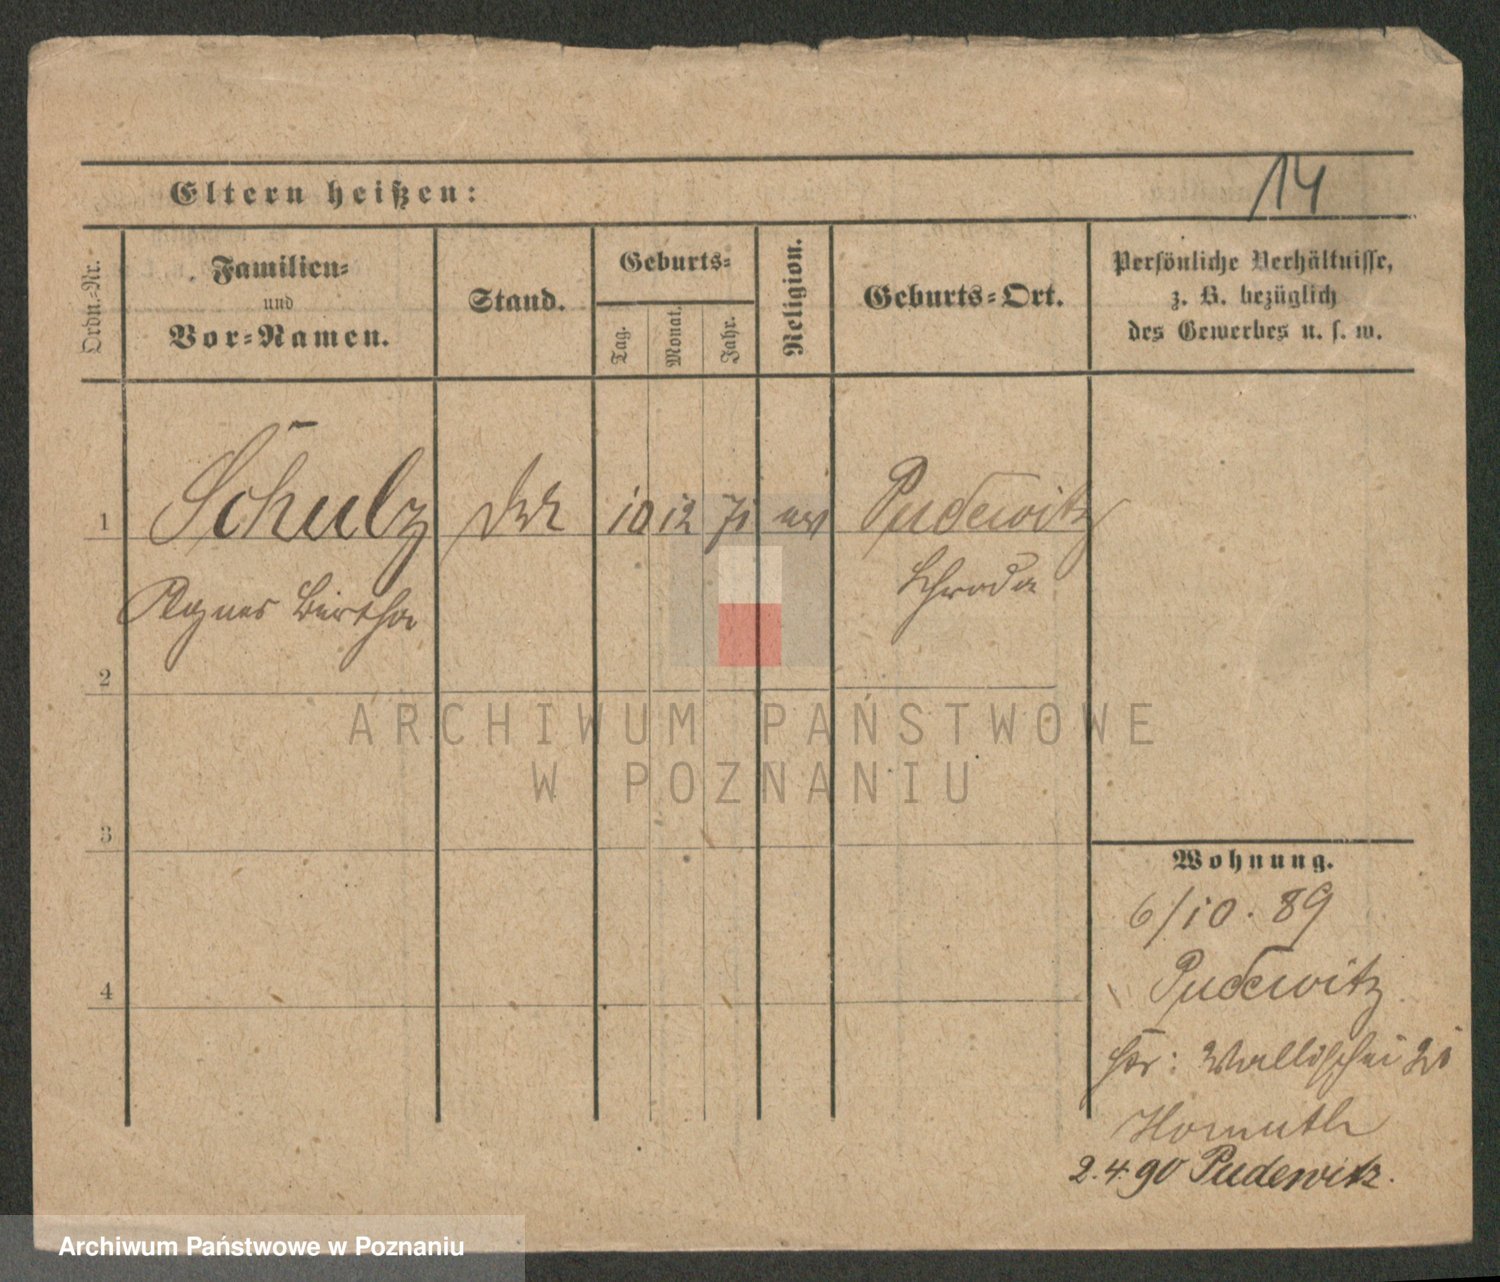 Eltern heißen:
14
Ordn.-Nr.
Familien-
und
Vor-Namen.
Stand.
Geburts-
Tag.
Monat.
Jahr.
Religion.
Geburts-Ort.
Persönliche Verhältnisse,
z. B. bezüglich
des Gewerbes u. s. w.
1
Schulz
10 12 71 ev
Pudewitz
Agnes Bertha
Schroda
2
ARCHIWUM PAŃSTWOWE
W POZNANIU
3
Wohnung.
6/10. 89
4
Pudewitz
Wallischei
Homuth
2.4.90 Pudewitz.
Archiwum Państwowe w Poznaniu